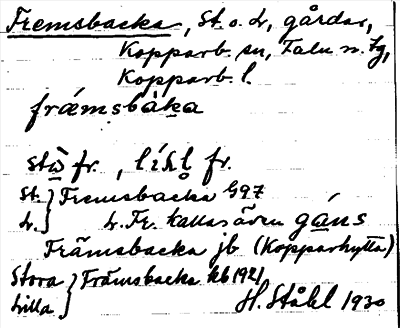 Fremsbacka, St. o. L., gårdar,
Kopparb. sn, Falu n. tg,
Kopparb. l.
frǽmsbàka
stò fr., líḱl fr.
St. } Fremsbacka G97
L. } L. Fr. kallas även gáns
Främsbacka jb (Kopparhytta)
Stora } Främsbacka kb 1921
Lilla }
H. Ståhl 1930